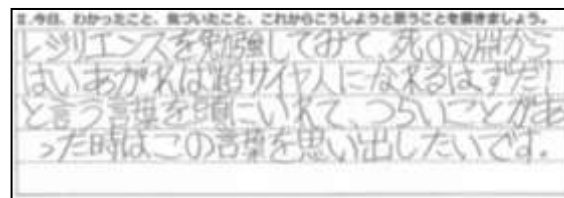 II.今日、わかったこと、気づいたこと、これからこうしようと思うことを書きましょう。
レジリエンスを勉強してみて、死の淵から
はいあがれば超サイヤ人になれるはずだ!
と言う言葉を頭にいれて、つらいことがあ
った時はこの言葉を思い出したいです。